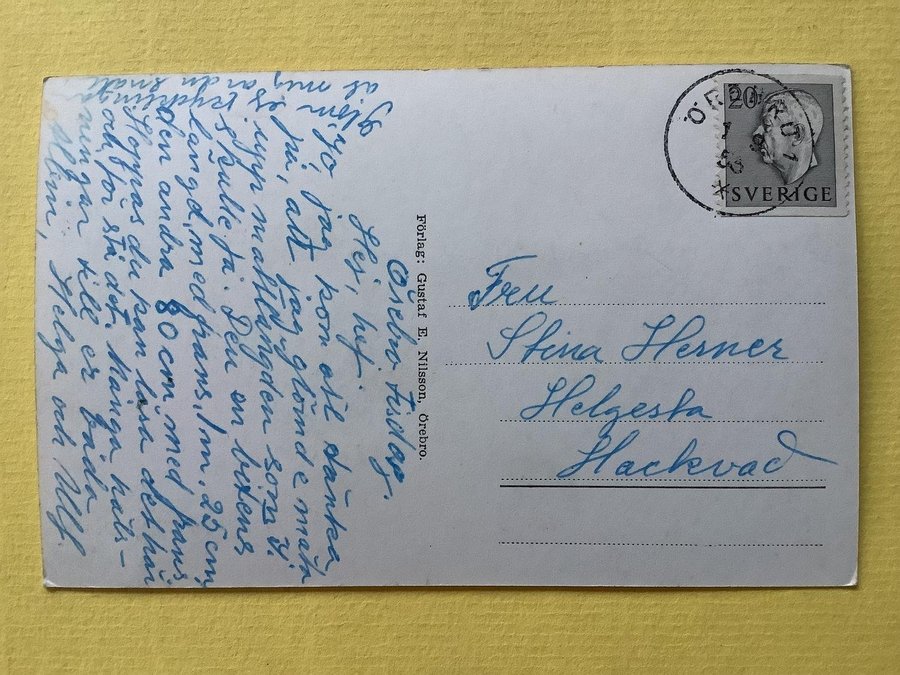 Örebro. tisdag.
Hej, hej.
jo, jag kom att tänka
på, att jag glömde mäta
upp mattlängden som vi
skulle ta. Den en bitens
längd med frans, 1 m. 25 cm
den andra 80 cm med frans
Hoppas du kan läsa det här
och förstå det. Många häls-
ningar till er båda
Helga och Ulf.
glöm ej
Förlag: Gustaf E. Nilsson, Örebro.
ÖREBRO 1
20
SVERIGE
Fru
Stina Herner
Helgesta
Hackvad